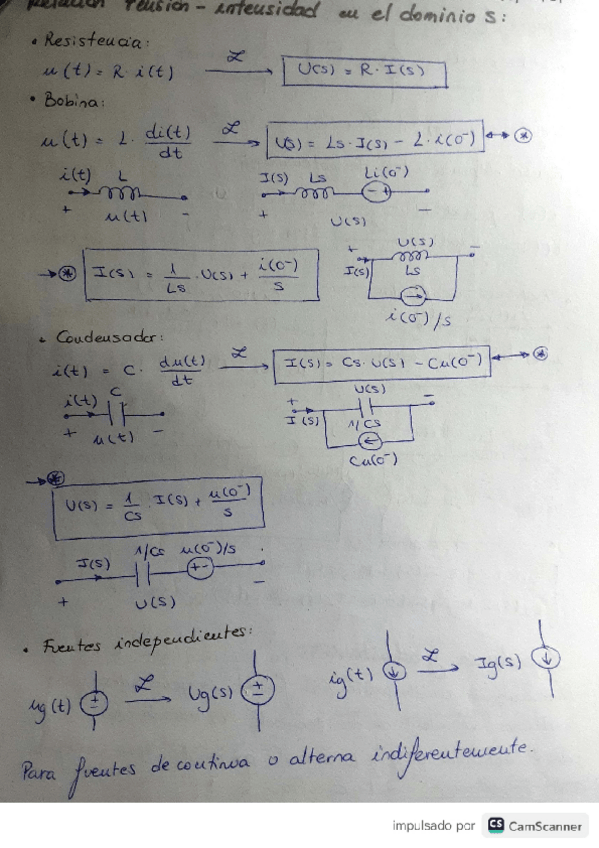 Relación Tensión - intensidad en el dominio s:
• Resistencia:
u(t) = R · i(t) ℒ→ U(s) = R · I(s)
• Bobina:
u(t) = L · di(t)/dt ℒ→ U(s) = Ls · I(s) - L · i(0⁻) ↔ ⊛
i(t) L I(s) Ls Li(0⁻)
- +
+ u(t) - + U(s) -
→ ⊛ I(s) = 1/Ls · U(s) + i(0⁻)/s
+ U(s) -
I(s) Ls
i(0⁻)/s
• Condensador:
i(t) = C · du(t)/dt ℒ→ I(s) = Cs · U(s) - Cu(0⁻) ↔ ⊛
i(t) C
+ u(t) -
+ U(s) -
I(s) 1/Cs
Cu(0⁻)
→ ⊛
U(s) = 1/Cs · I(s) + u(0⁻)/s
I(s) 1/Cs u(0⁻)/s
+ -
+ U(s) -
• Fuentes independientes:
ug(t) ± ℒ→ Ug(s) ± ig(t) ↓ ℒ→ Ig(s) ↓
Para fuentes de continua o alterna indiferentemente.
impulsado por CS CamScanner